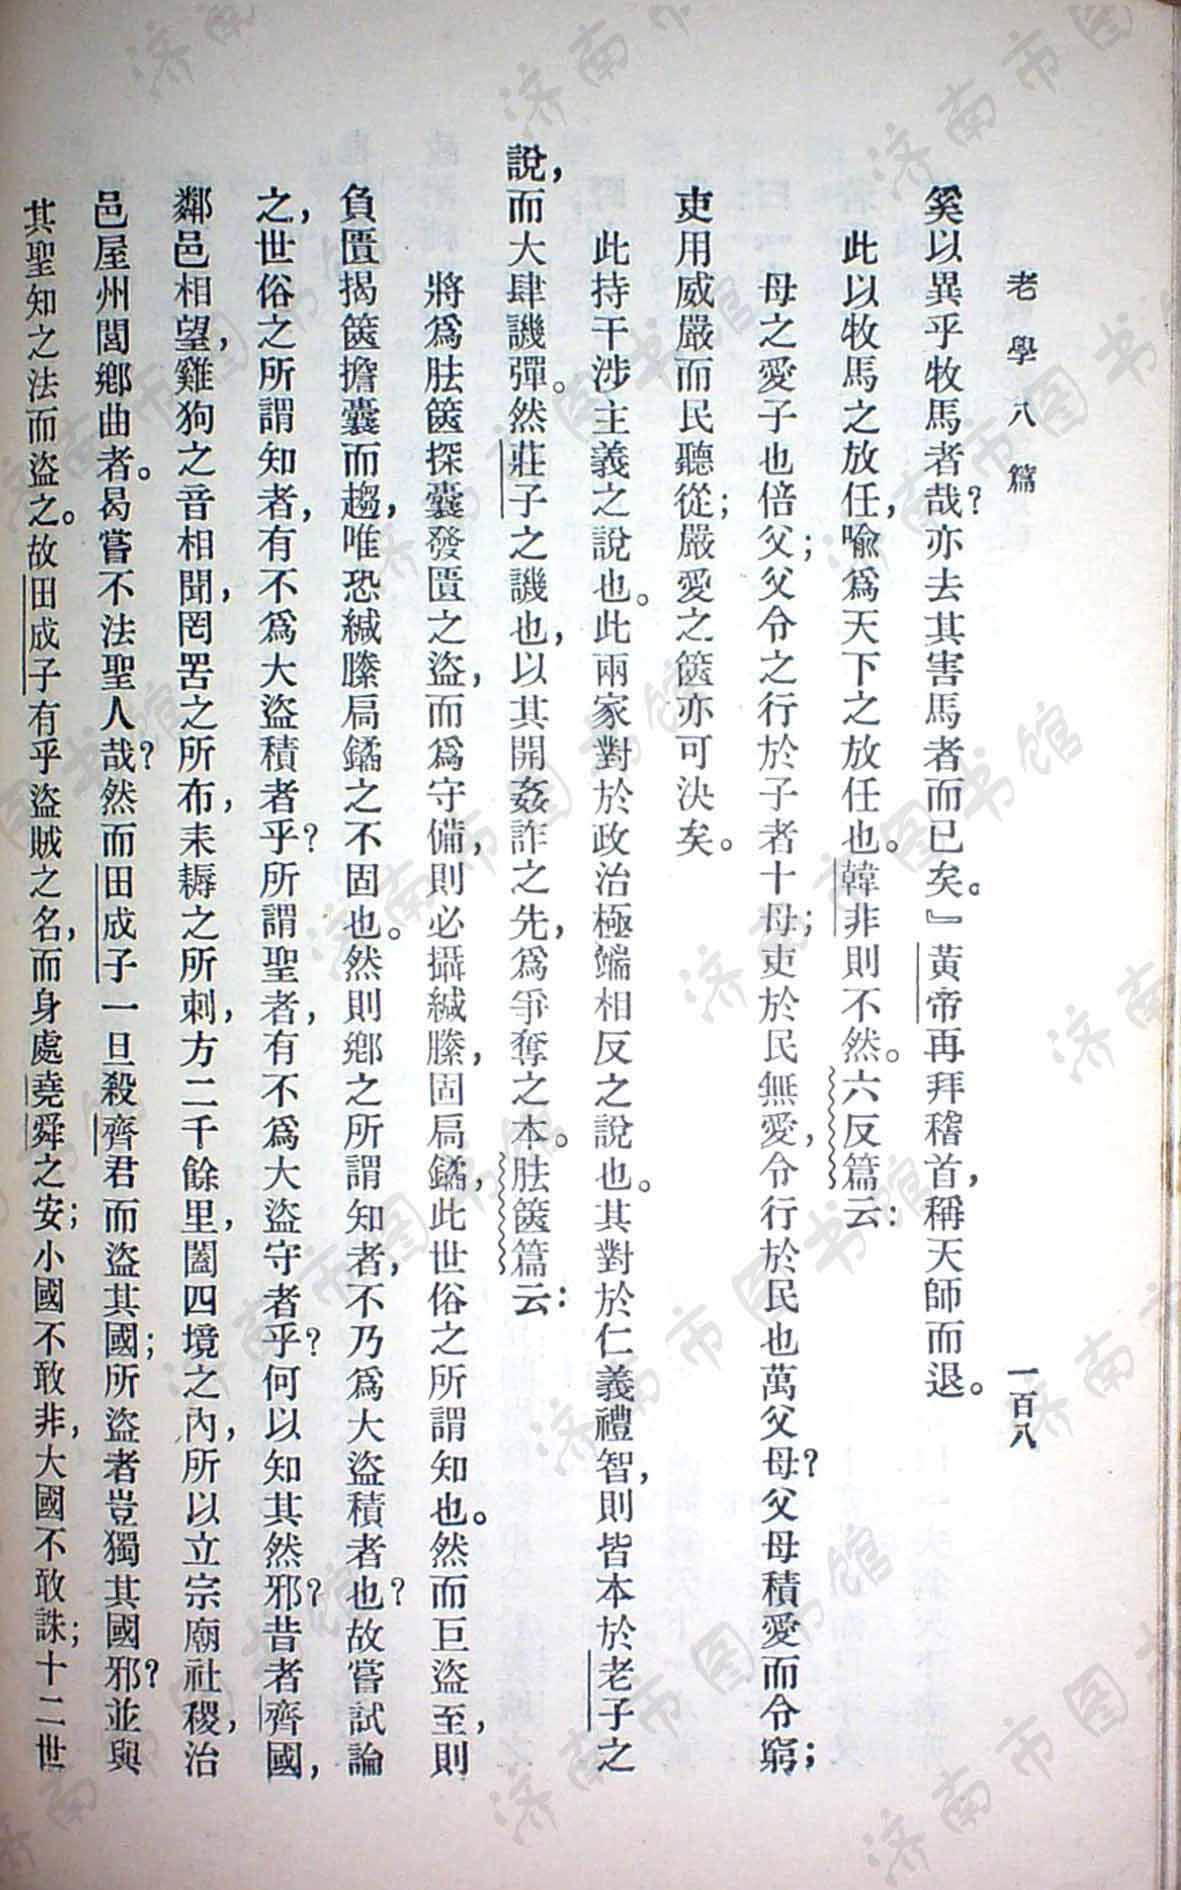 老學八篇
一百八
奚以異乎牧馬者哉?亦去其害馬者而已矣。』黃帝再拜稽首,稱天師而退。
此以牧馬之放任,喩爲天下之放任也。韓非則不然。六反篇云:
母之愛子也倍父;父令之行於子者十母;吏於民無愛,令行於民也萬父母?父母積愛而令窮;
吏用威嚴而民聽從;嚴愛之筴亦可決矣。
此持干涉主義之說也。此兩家對於政治極端相反之說也。其對於仁義禮智,則皆本於老子之
說,而大肆譏彈。然莊子之譏也,以其開姦詐之先,爲爭奪之本。胠篋篇云:
將爲胠篋探囊發匱之盜,而爲守備,則必攝緘縢,固扃鐍,此世俗之所謂知也。然而巨盜至,則
負匱揭篋擔囊而趨,唯恐緘縢扃鐍之不固也。然則鄉之所謂知者,不乃爲大盜積者也?故嘗試論
之,世俗之所謂知者,有不爲大盜積者乎?所謂聖者,有不爲大盜守者乎?何以知其然邪?昔者齊國,
鄰邑相望,雞狗之音相聞,罔罟之所布,耒耨之所刺,方二千餘里,闔四境之內,所以立宗廟社稷,治
邑屋州閭鄉曲者。曷嘗不法聖人哉?然而田成子一旦殺齊君而盜其國;所盜者豈獨其國邪?並與
其聖知之法而盜之。故田成子有乎盜賊之名,而身處堯舜之安;小國不敢非,大國不敢誅;十二世
济南市图书馆